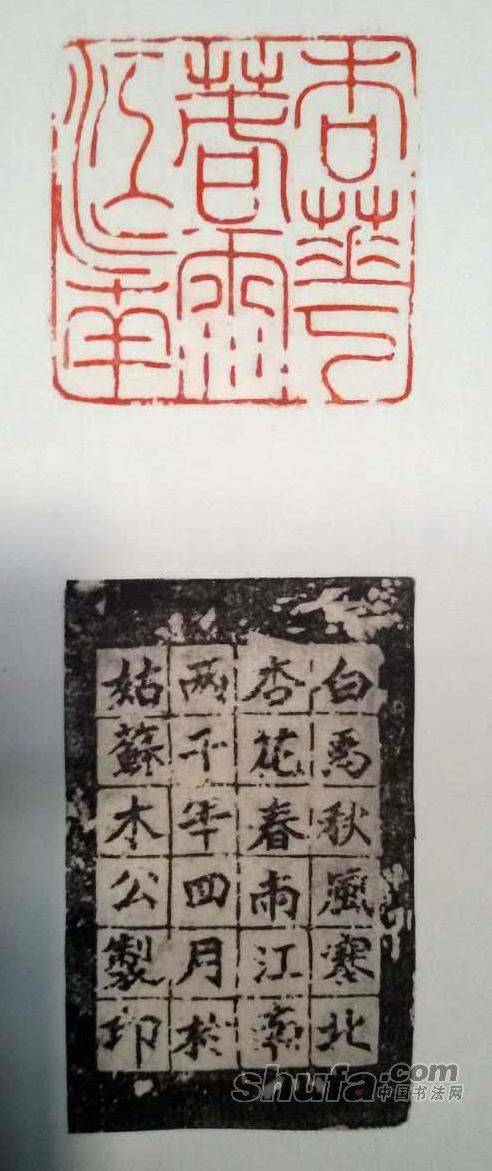 杏華
春雨
江南
白馬秋風寒北
杏花春雨江南
兩千年四月於
姑蘇木公製印
shufa.com
中国书法网